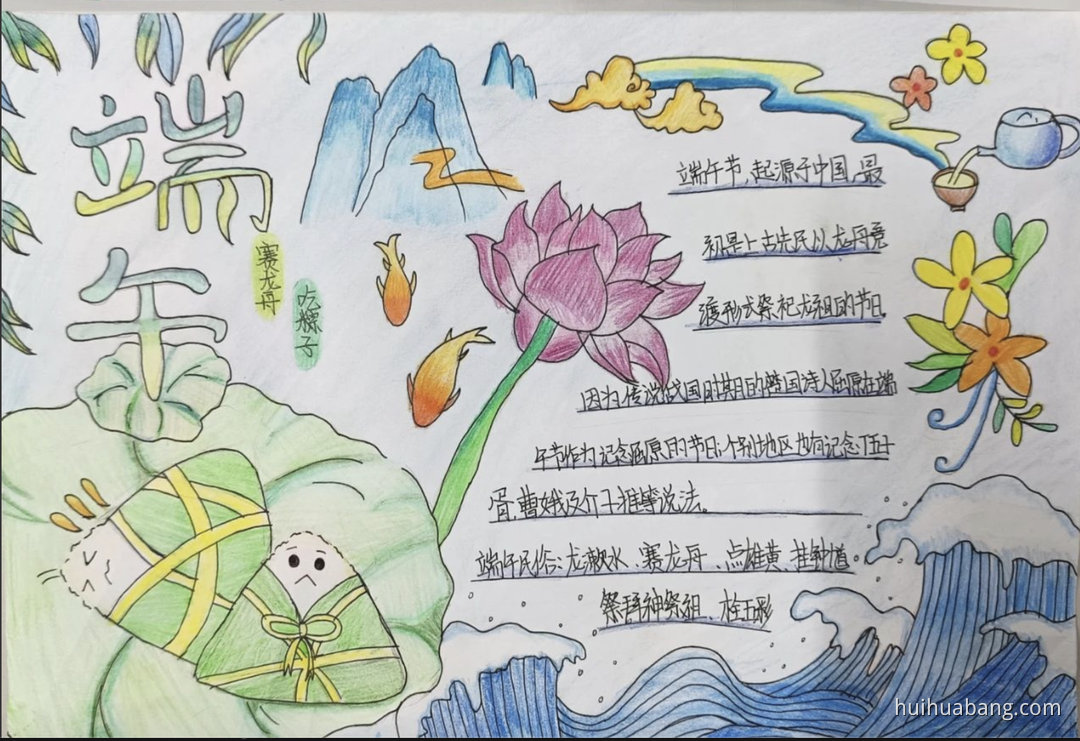 端午
赛龙舟
吃粽子
端午节,起源于中国,最
初是上古先民以龙舟竞
渡形式祭祀龙祖的节日。
因为传说战国时期的楚国诗人屈原在端
午节作为记念屈原的节日;个别地区也有记念伍子
胥,曹娥及介子推等说法。
端午民俗:龙潄水、赛龙舟、点雄黄、挂钟馗
祭神祭祖、栓五彩
huihuabang.com